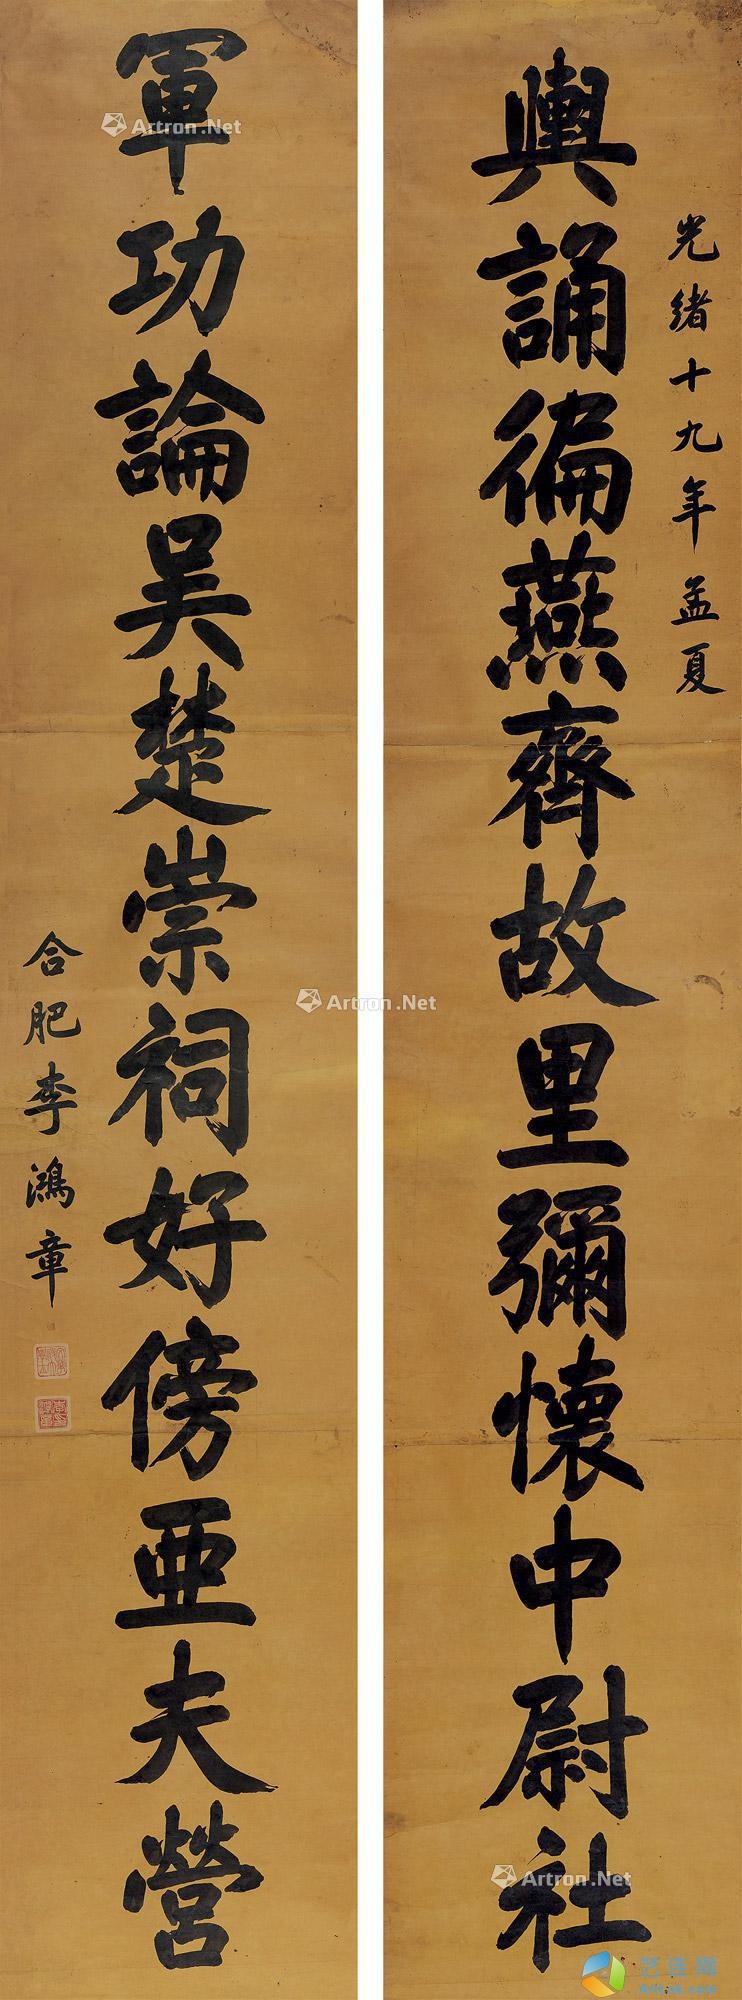 光緒十九年孟夏
輿誦徧燕齊故里彌懷中尉社
軍功論吴楚崇祠好傍亜夫營
合肥李鴻章
Artron.Net
Artron.Net
Artron.Net
艺连网